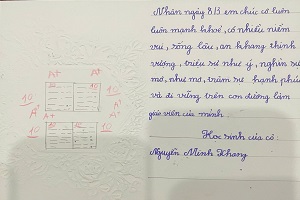 A+ A+
10 10
A+ A+
A+ A+
10 10
Nhân ngày 8/3 em chúc cô luôn
luôn mạnh khoẻ, có nhiều niềm
vui, sống lâu, an khang thịnh
vượng, triệu sự như ý, nghìn sự
mơ, như mơ, trăm sự hạnh phúc
và đi vững trên con đường làm
giáo viên của mình.
Học sinh của cô:
Nguyễn Minh Khang